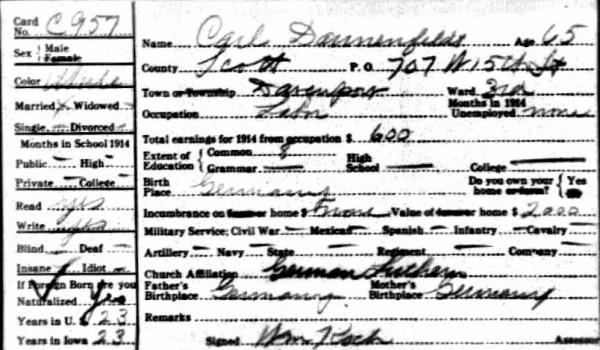 Card No. C957
Sex { Male Female
Color White
Married Widowed
Single Divorced
Months in School 1914
Public High
Private College
Read yes
Write yes
Blind Deaf
Insane Idiot
If Foreign Born are you Naturalized yes
Years in U. S. 23
Years in Iowa 23
Name Carl Dannenfeldt Age 65
County Scott P. O. 707 W 15th St
Town or Township Davenport Ward 3rd
Occupation Labr Months in 1914 Unemployed none
Total earnings for 1914 from occupation $ 600
Extent of Education { Common 8 High School College
Grammar
Birth Place Germany Do you own your home or farm? { Yes No
Incumbrance on farm or home $ none Value of farm or home $ 2000
Military Service; Civil War Mexican Spanish Infantry Cavalry
Artillery Navy State Regiment Company
Church Affiliation German Lutheran
Father's Birthplace Germany Mother's Birthplace Germany
Remarks
Signed Wm. Koch Assessor